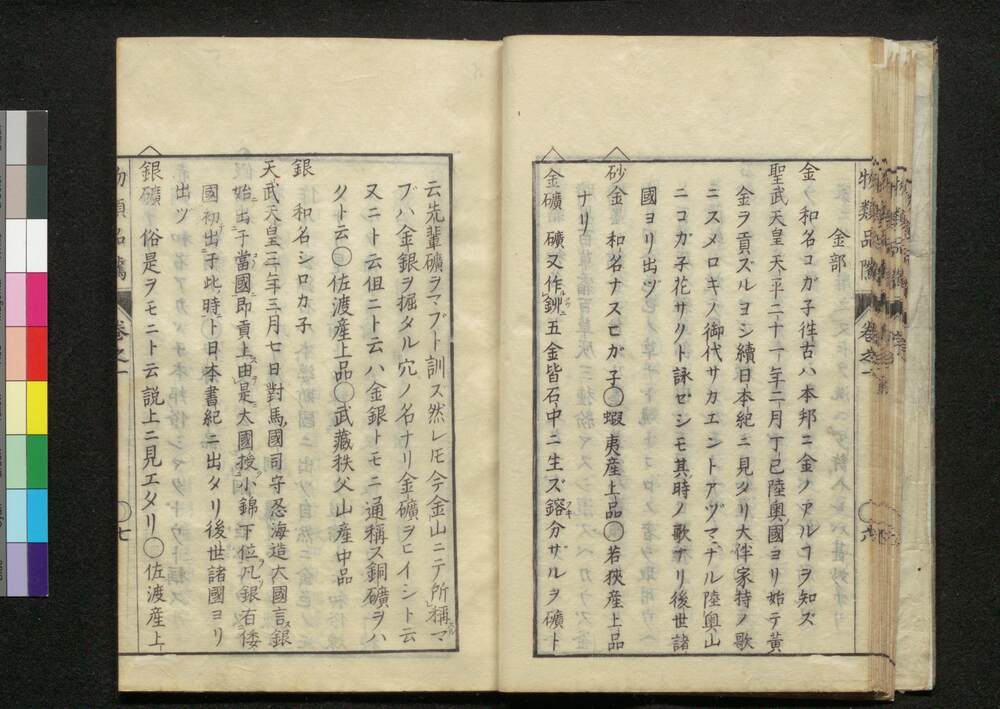 物類品隲 卷之一 六
金部
金 和名コガ子 徃古ハ本邦ニ金ノアルヿヲ知ズ
聖武天皇天平二十一年二月丁巳陸奥國ヨリ始テ黄
金ヲ貢ズルヨシ續日本紀ニ見タリ大伴家持ノ歌
ニスメロキノ御代サカエントアヅマナル陸奥山
ニコガ子花サクト詠ゼシモ其時ノ歌ナリ後世諸
國ヨリ出ヅ
砂金 和名ナスビガ子〇蝦夷産上品〇若狹産上品
ナリ
金礦 礦又作鉚五金皆石中ニ生ズ鎔分ザルヲ礦ト
云先軰礦ヲマブト訓ス然レ𪜈今金山ニテ所稱マ
ブハ金銀ヲ掘タル穴ノ名ナリ金礦ヲヒイシト云
又ニト云伹ニト云ハ金銀トモニ通稱ス銅礦ヲハ
クト云〇佐渡産上品〇武藏秩父山産中品
銀 和名シロカ子
天武天皇三年三月七日對馬國司守忍海造大國言銀
始出于當國即貢上由是大國授小錦下位凡銀有倭
國初出于此時ト日本書紀ニ出タリ後世諸國ヨリ
出ツ
銀礦 俗是ヲモニト云説上ニ見エタリ〇佐渡産上
物類品隲 卷之一 七